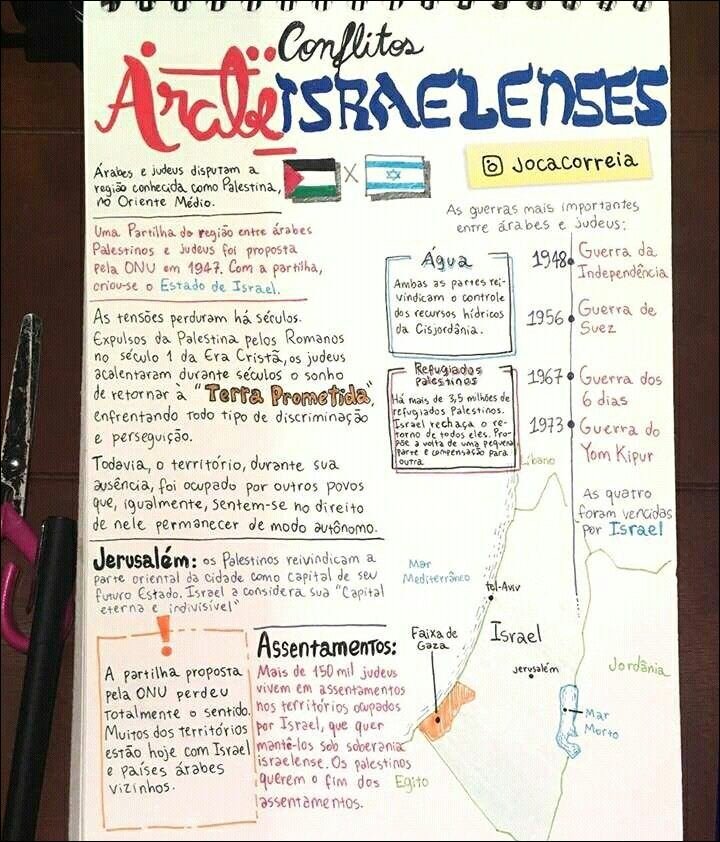 Conflitos
Árabe ISRAELENSES
jocacorreia
Árabes e judeus disputam a
região conhecida como Palestina,
no Oriente Médio.
X
Uma Partilha da região entre árabes
Palestinos e judeus foi proposta
pela ONU em 1947. Com a partilha,
criou-se o Estado de Israel.
As tensões perduram há séculos.
Expulsos da Palestina pelos Romanos
no século 1 da Era Cristã, os judeus
acalentaram durante séculos o sonho
de retornar à "Terra Prometida",
enfrentando todo tipo de discriminação
e perseguição.
Todavia, o território, durante sua
ausência, foi ocupado por outros povos
que, igualmente, sentem-se no direito
de nele permanecer de modo autônomo.
Jerusalém: os Palestinos reivindicam a
parte oriental da cidade como capital de seu
futuro Estado. Israel a considera sua "Capital
eterna e indivisível"
!
A partilha proposta
pela ONU perdeu
totalmente o sentido.
Muitos dos territórios
estão hoje com Israel
e países árabes
vizinhos.
Assentamentos:
Mais de 150 mil judeus
vivem em assentamentos
nos territórios ocupados
por Israel, que quer
mantê-los sob soberania
israelense. Os palestinos
querem o fim dos
assentamentos.
As guerras mais importantes
entre árabes e judeus:
Água
Ambas as partes rei-
vindicam o controle
dos recursos hídricos
da Cisjordânia.
Refugiados
Palestinos
Há mais de 3,5 milhões de
refugiados Palestinos.
Israel rechaça o re-
torno de todos eles. Pro-
põe a volta de uma pequena
parte e compensação para
outra
1948 Guerra da
Independência
1956 Guerra de
Suez
1967 Guerra dos
6 dias
1973 Guerra do
Yom Kipur
As quatro
foram vencidas
por Israel
Líbano
Mar
Mediterrâneo
tel-Aviv
Faixa de
Gaza
Israel
Jerusalém
Jordânia
Mar
Morto
Egito